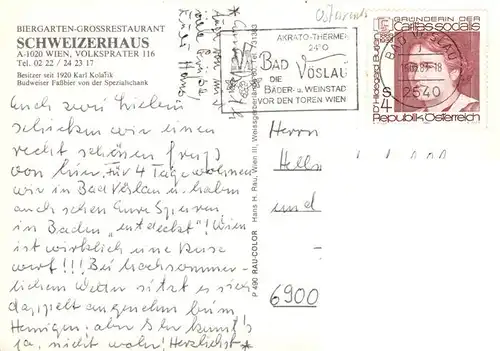 BIERGARTEN-GROSSRESTAURANT
SCHWEIZERHAUS
A-1020 WIEN, VOLKSPRATER 116
Tel. 02 22 / 24 23 17
Besitzer seit 1920 Karl Kolařik
Budweiser Faßbier von der Spezialschank
Euch zwei Lieben
schicken wir einen
recht schönen Gruß
von hier. Für 4 Tage wohnen
wir in Bad Vöslau u. haben
auch schon Eure Spuren
in Baden „entdeckt"! Wien
ist wirklich eine Reise
wert!!! Bei hochsommer-
lichem Wetter sitzt es sich
doppelt angenehm beim
Heurigen; aber Ihr kennt's
ja, nicht wahr! Herzlichst
P 490 RAU-COLOR Hans H. Rau, Wien III, Weissgerber
AKRATO-THERME
24°C
BAD VÖSLAU
DIE
BÄDER- u. WEINSTADT
VOR DEN TOREN WIENS
BAD VÖSLAU
2540
GRÜNDERIN DER
Caritas socialis
Dr. Hildegard Burjan
S 4
Republik Österreich
Herrn
und
6900